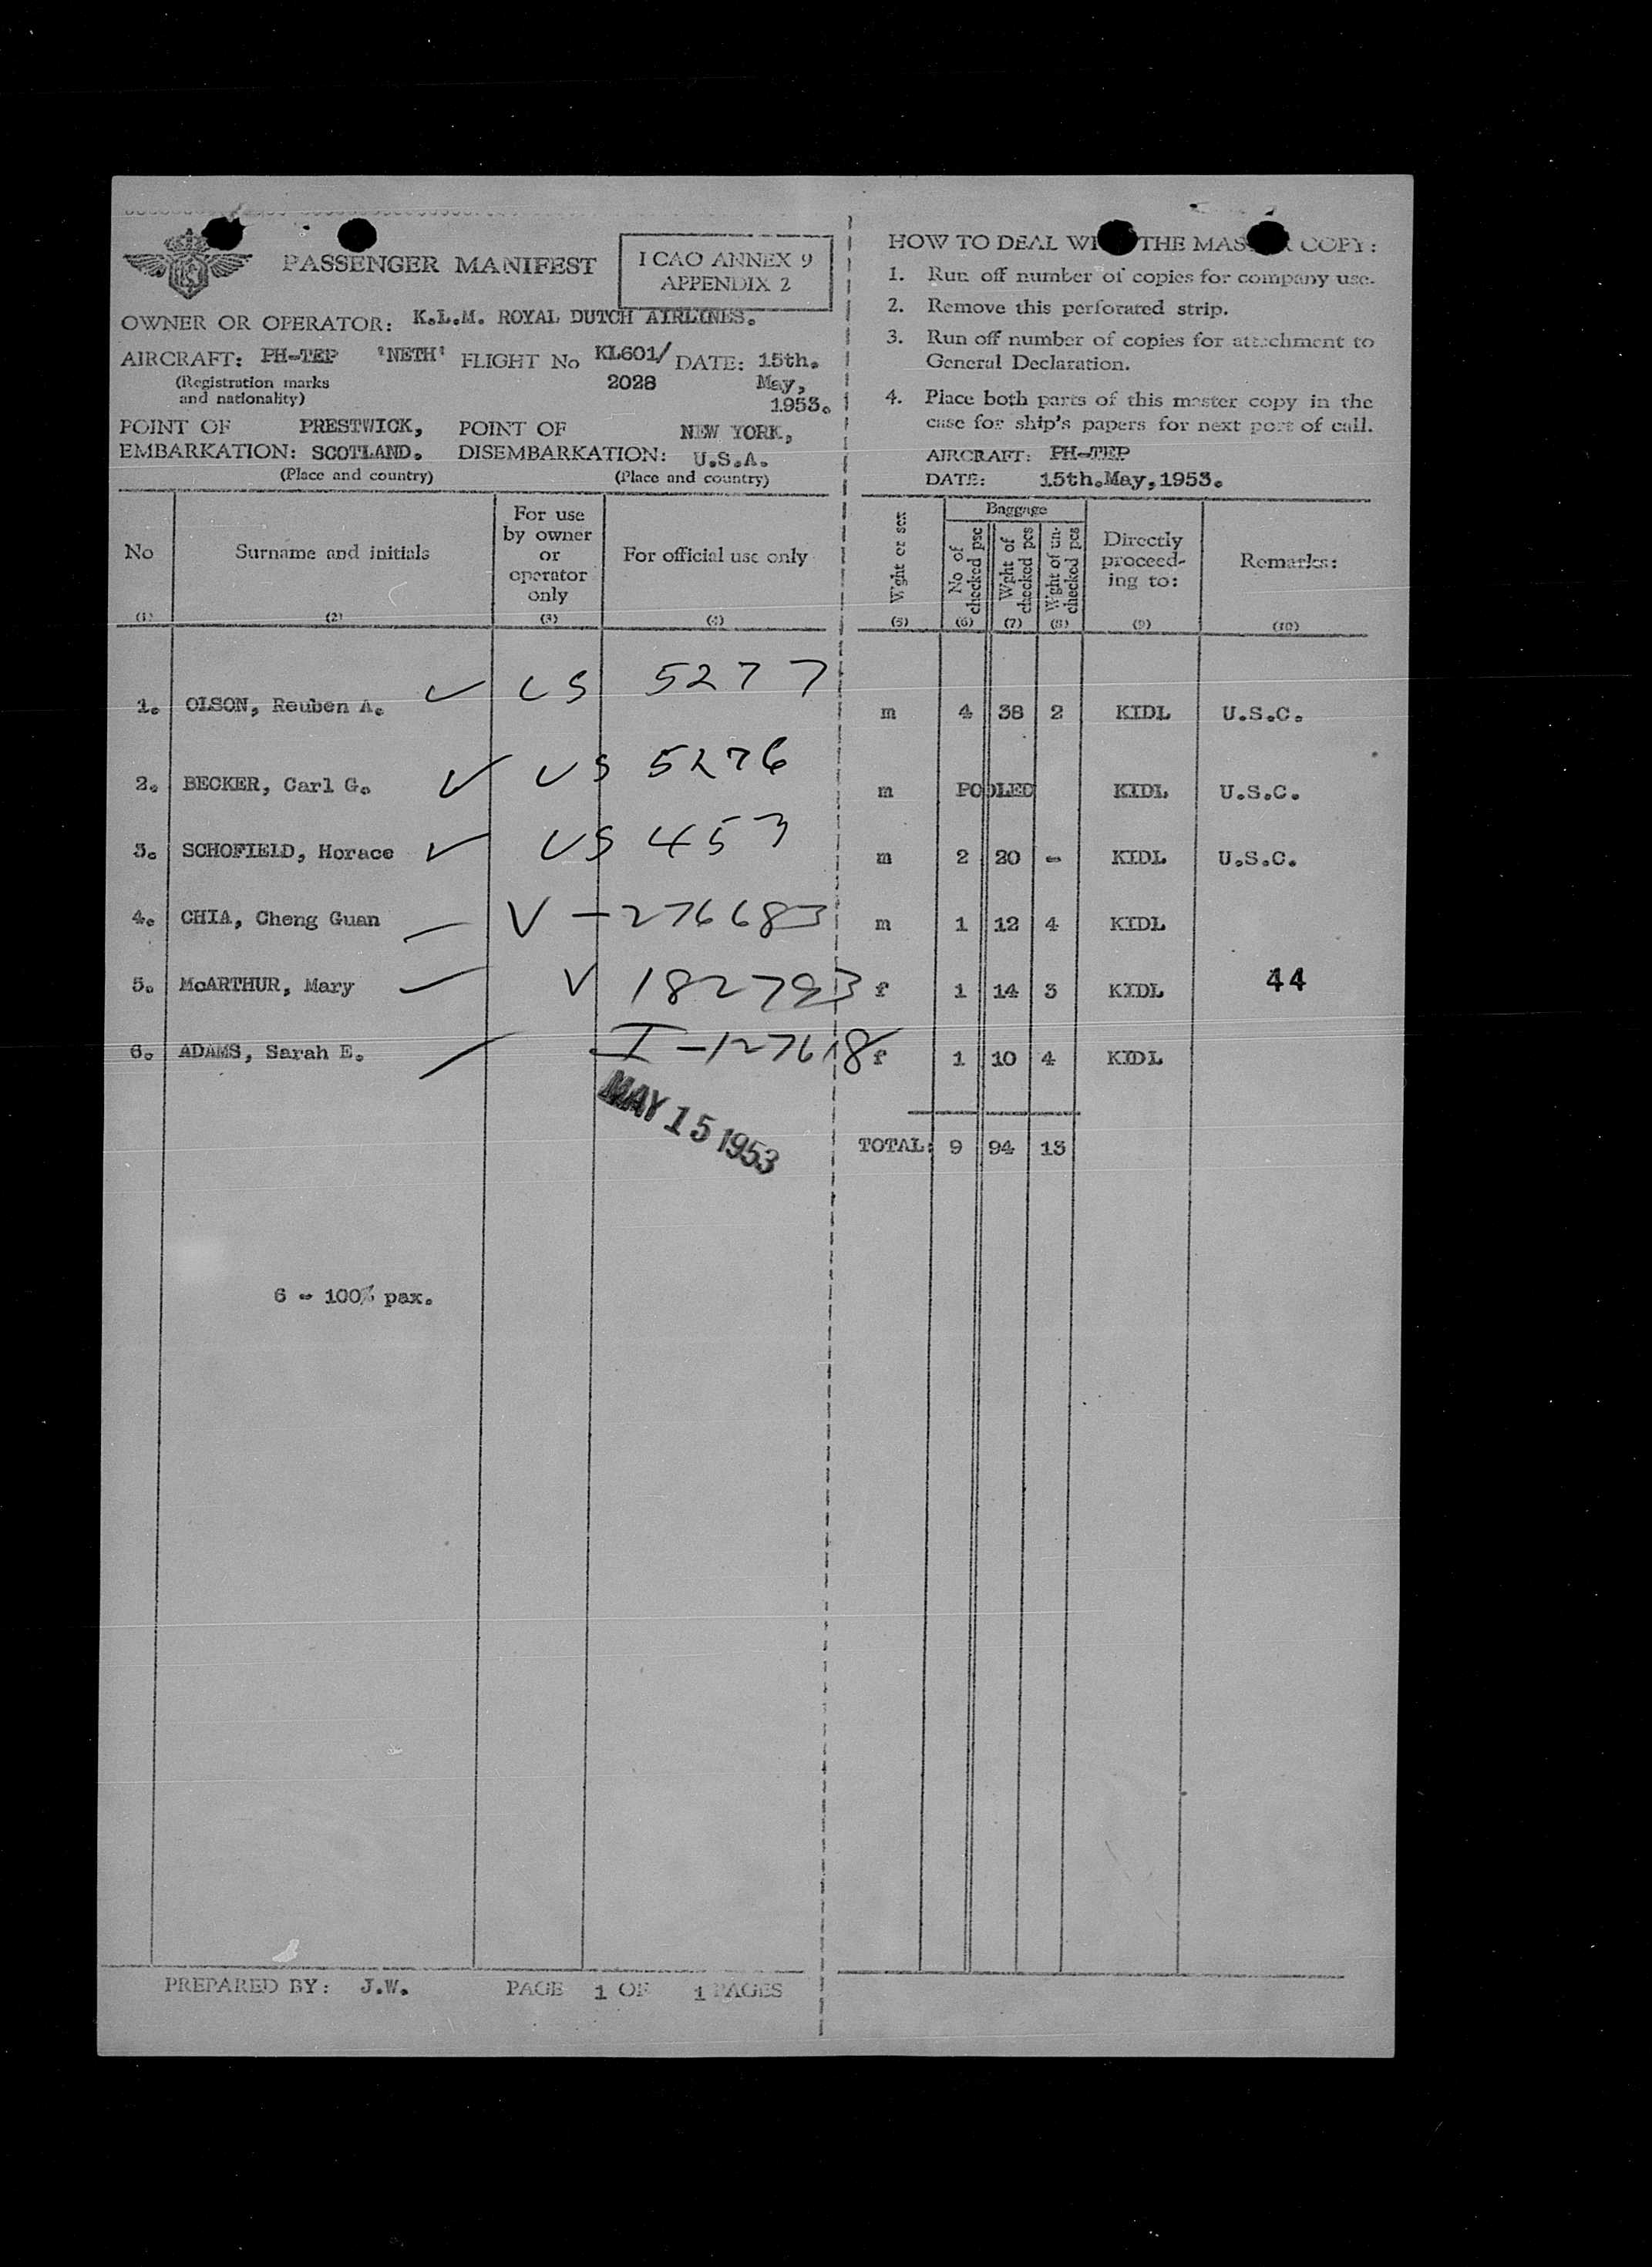 PASSENGER MANIFEST
ICAO ANNEX 9
APPENDIX 2
OWNER OR OPERATOR: K.L.M. ROYAL DUTCH AIRLINES.
AIRCRAFT: PH-TEP 'NETH' FLIGHT No KL601/ DATE: 15th.
(Registration marks 2028 May,
and nationality) 1953.
POINT OF PRESTWICK, POINT OF NEW YORK,
EMBARKATION: SCOTLAND. DISEMBARKATION: U.S.A.
(Place and country) (Place and country)
HOW TO DEAL THE COPY:
1. Run off number of copies for company use.
2. Remove this perforated strip.
3. Run off number of copies for attachment to
General Declaration.
4. Place both parts of this master copy in the
case for ship's papers for next port of call.
AIRCRAFT: PH-TEP
DATE: 15th.May,1953.
No Surname and initials For use by owner or operator only For official use only Wght or sex Baggage No of checked psc Wght of checked pcs Wght of un-checked pcs Directly proceed-ing to: Remarks:
(1) (2) (3) (4) (5) (6) (7) (8) (9) (10)
1. OLSON, Reuben A. ✓ US 5277 m 4 38 2 KIDL U.S.C.
2. BECKER, Carl G. ✓ US 5276 m POOLED KIDL U.S.C.
3. SCHOFIELD, Horace ✓ US 453 m 2 20 - KIDL U.S.C.
4. CHIA, Cheng Guan V - 276683 m 1 12 4 KIDL
5. McARTHUR, Mary V 182793 f 1 14 3 KIDL 44
6. ADAMS, Sarah E. I - 127618 f 1 10 4 KIDL
MAY 15 1953
TOTAL: 9 94 13
6 - 100% pax.
PREPARED BY: J.W. PAGE 1 OF 1 PAGES